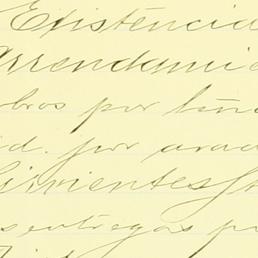 Existencia
Arrendamie
bros por
id. por arad
Sirvientes
s entregas p